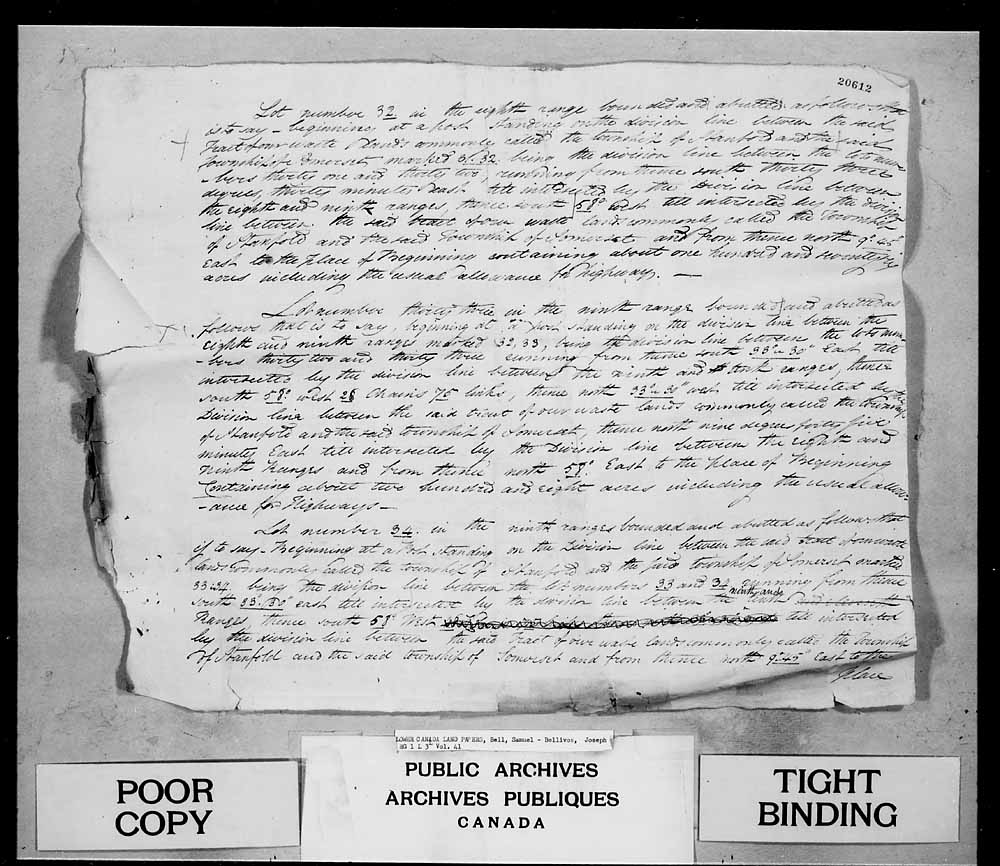 20612
Lot number 32 in the eighth range bounded and abutted as follows that
is to say - beginning at a post standing on the division line between the said
Tract of our waste Lands commonly called the township of Stanfold and the said
Township of Somerset marked 31.32. being the division line between the lots num
-bers thirty one and thirty two, running from thence south thirty three
degrees, thirty minutes East till intersected by the Division line between
the eighth and ninth ranges, thence south 58° West till intersected by the division
line between the said tract of our waste lands commonly called the Township
of Stanfold and the said Township of Somerset and from thence north 9°.45'
East to the place of Beginning containing about one hundred and seventy
acres including the usual allowance for Highways. —
Lot number thirty three in the ninth range bounded and abutted as
follows that is to say, beginning at a post standing on the division line between the
eighth and ninth ranges marked 32, 33, being the division line between the lots num
-bers thirty two and thirty three running from thence south 33°.30' East till
intersected by the division line between the ninth and tenth ranges, thence
south 58° West 28 Chains 75 links, thence north 33°.30' West till intersected by the
Division line between the said tract of our waste lands commonly called the township
of Stanfold and the said township of Somerset, thence north nine degrees forty five
minutes East till intersected by the Division line between the eighth and
ninth Ranges and from thence north 58° East to the place of Beginning
Containing about two hundred and eight acres including the usual allow
-ance for Highways —
Lot number 34 in the ninth ranges bounded and abutted as follows that
is to say - Beginning at a Post standing on the Division line between the said tract of our waste
lands Commonly called the township of Stanfold and the said township of Somerset marked
33.34 being the division line between the lots numbers 33 and 34 running from thence
South 33°.30' east till intersected by the division line between the ninth and tenth
Ranges, thence south 58° West till intersected
by the division line between the said Tract of our waste lands commonly called the Township
of Stanfold and the said township of Somerset and from thence north 9°.45' East to the
place
LOWER CANADA LAND PAPERS, Bell, Samuel - Bellivou, Joseph
RG 1 L 3 Vol. 41
PUBLIC ARCHIVES
ARCHIVES PUBLIQUES
CANADA
POOR
COPY
TIGHT
BINDING